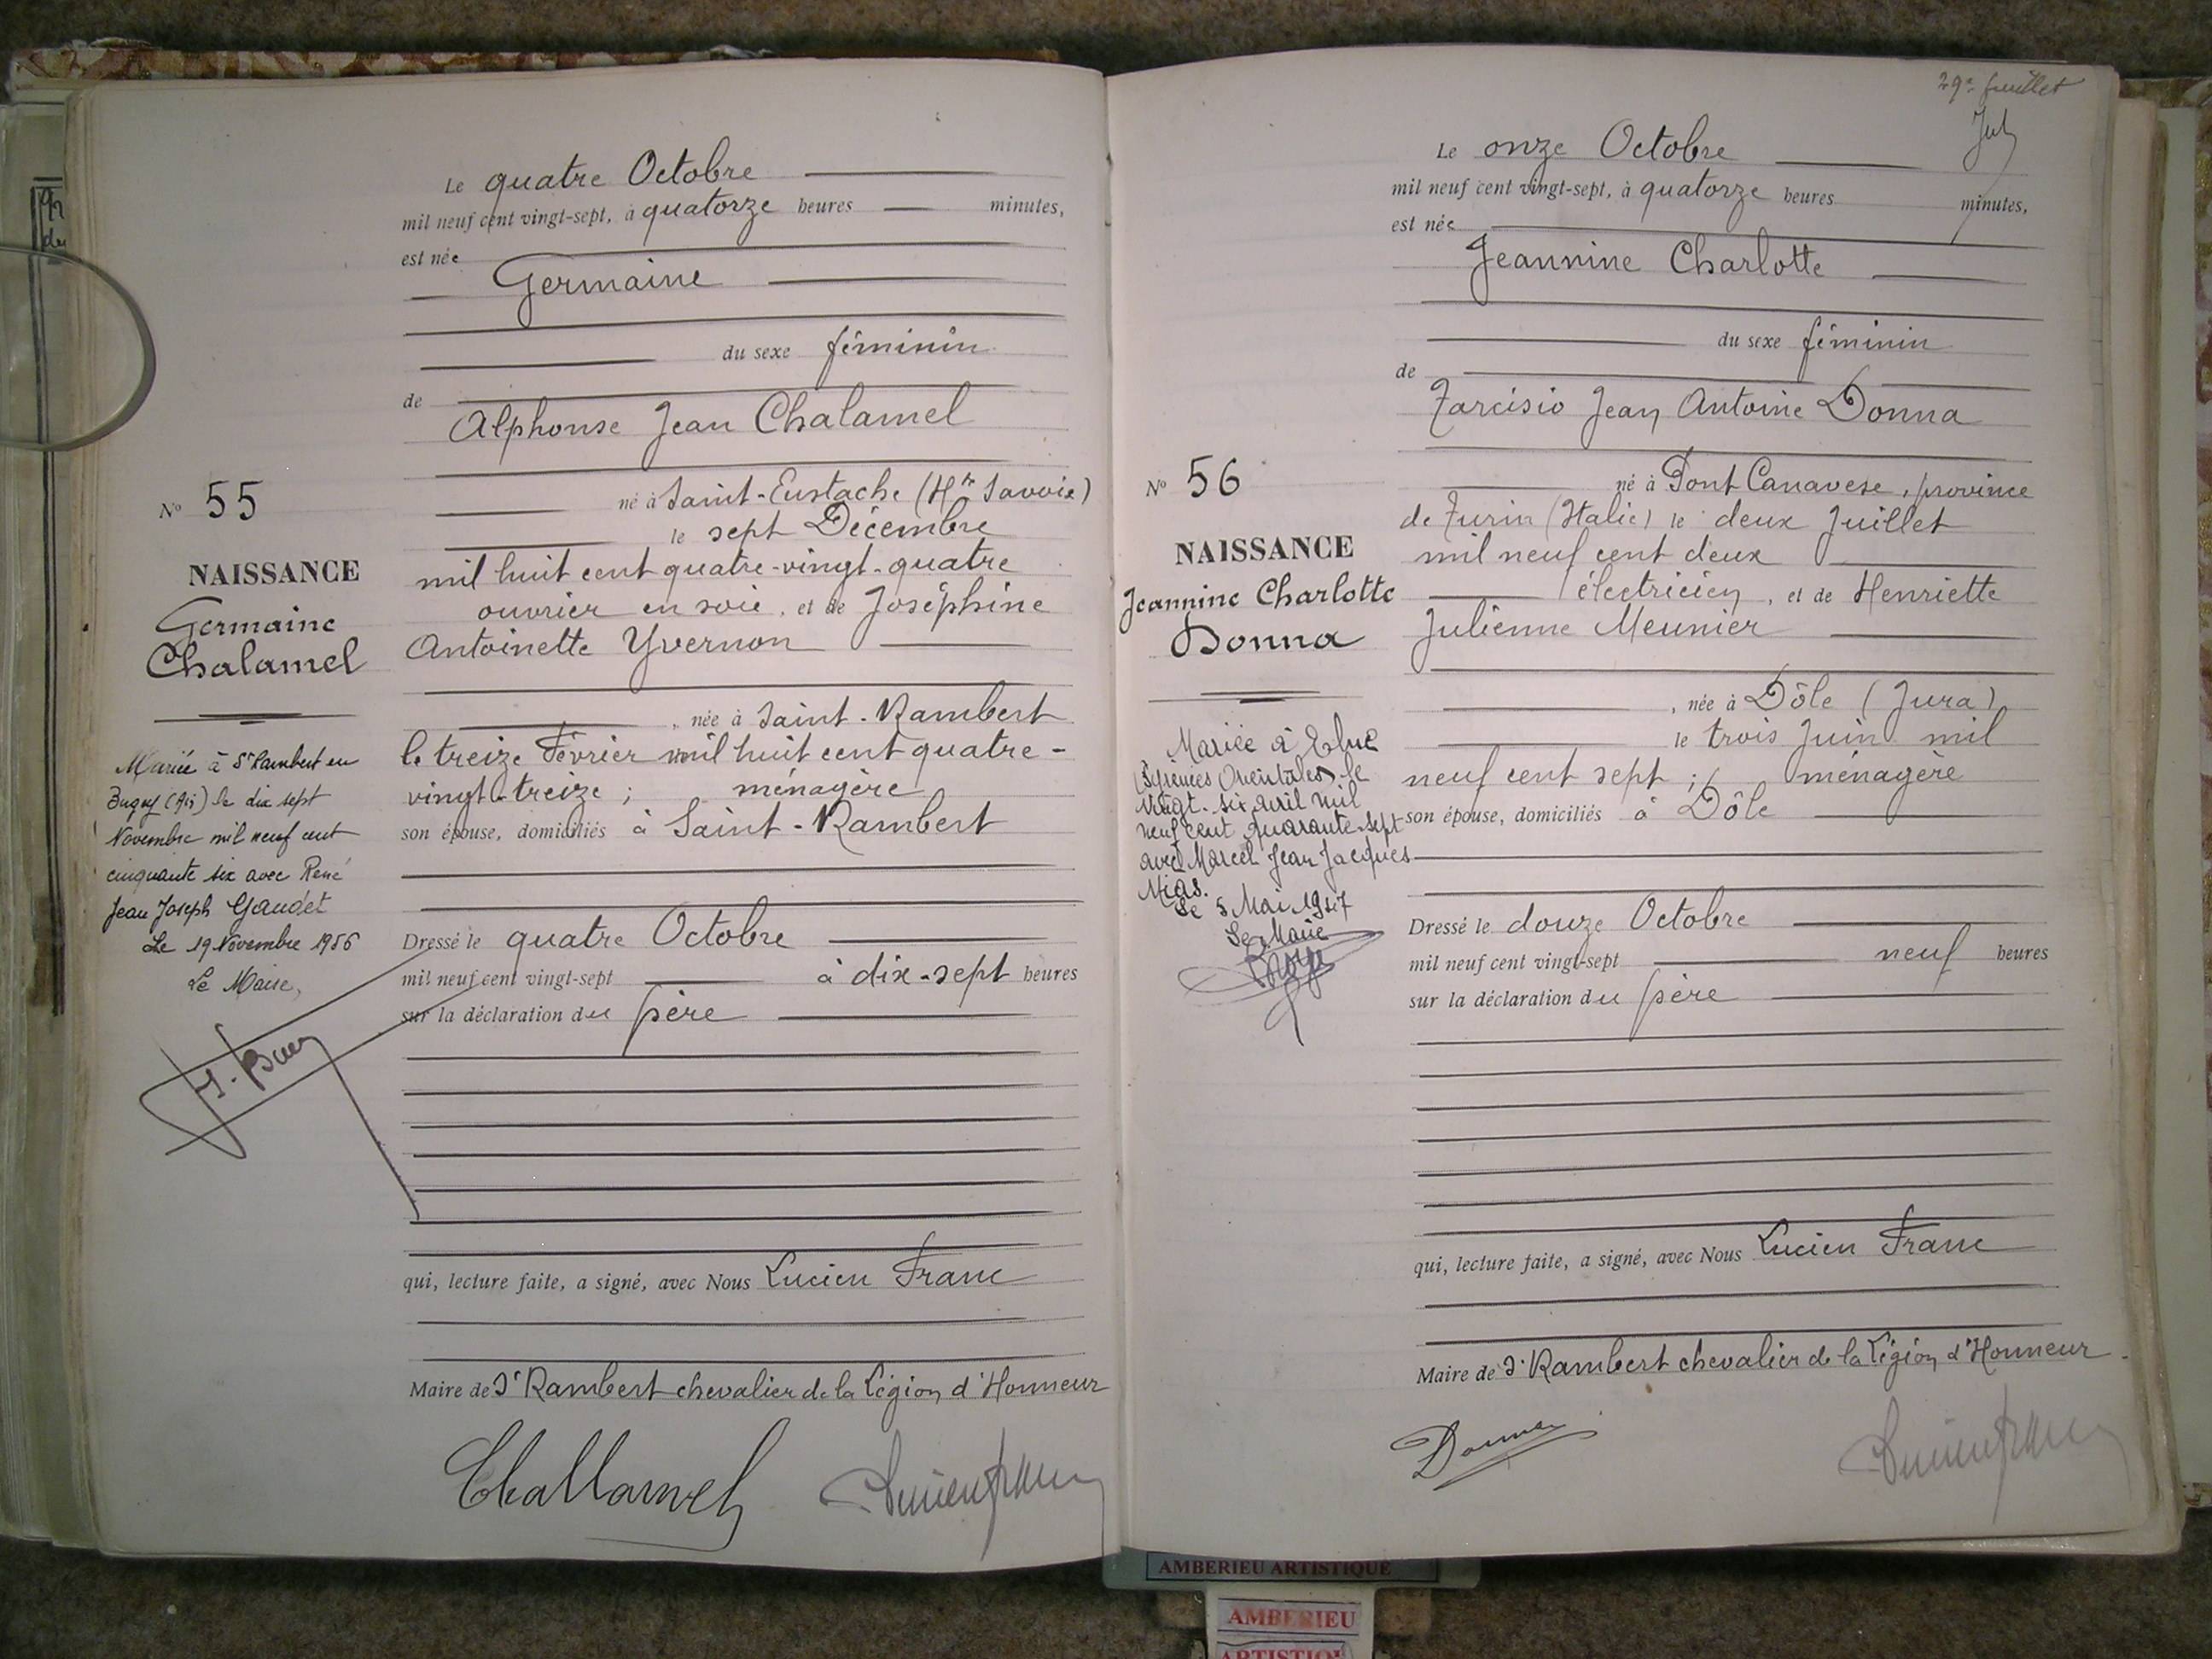 Le quatre Octobre
mil neuf cent vingt-sept, à quatorze heures minutes,
est née
Germaine
du sexe féminin
de
Alphonse Jean Chalamel
né à Saint-Eustache (Hte Savoie)
le sept Décembre
mil huit cent quatre-vingt-quatre
ouvrier en soie, et de Joséphine
Antoinette Yvernon
, née à Saint-Rambert
le treize Février mil huit cent quatre-
vingt-treize ; ménagère
son épouse, domiciliés à Saint-Rambert
Dressé le quatre Octobre
mil neuf cent vingt-sept à dix-sept heures
sur la déclaration du père
qui, lecture faite, a signé, avec Nous Lucien Franc
Maire de St Rambert chevalier de la Légion d'Honneur
Challamel
N° 55
NAISSANCE
Germaine
Chalamel
Mariée à St Rambert en
Bugey (Ain) le dix sept
Novembre mil neuf cent
cinquante six avec René
Jean Joseph Gaudet
Le 19 Novembre 1956
Le Maire,
29e feuillet
Le onze Octobre
mil neuf cent vingt-sept, à quatorze heures minutes,
est née
Jeannine Charlotte
du sexe féminin
de
Tarcisio Jean Antoine Donna
né à Pont Canavese, province
de Turin (Italie) le deux Juillet
mil neuf cent deux
électricien, et de Henriette
Julienne Meunier
, née à Dôle (Jura)
le trois Juin mil
neuf cent sept ; ménagère
son épouse, domiciliés à Dôle
Dressé le douze Octobre
mil neuf cent vingt-sept neuf heures
sur la déclaration du père
qui, lecture faite, a signé, avec Nous Lucien Franc
Maire de St Rambert chevalier de la Légion d'Honneur
Donna
N° 56
NAISSANCE
Jeannine Charlotte
Donna
Mariée à Elne
(Pyrénées Orientales) le
vingt-six avril mil
neuf cent quarante-sept
avec Marcel Jean Jacques
Mias.
Le 5 Mai 1947
Le Maire
AMBERIEU ARTISTIQUE
AMBERIEU
ARTISTIQ